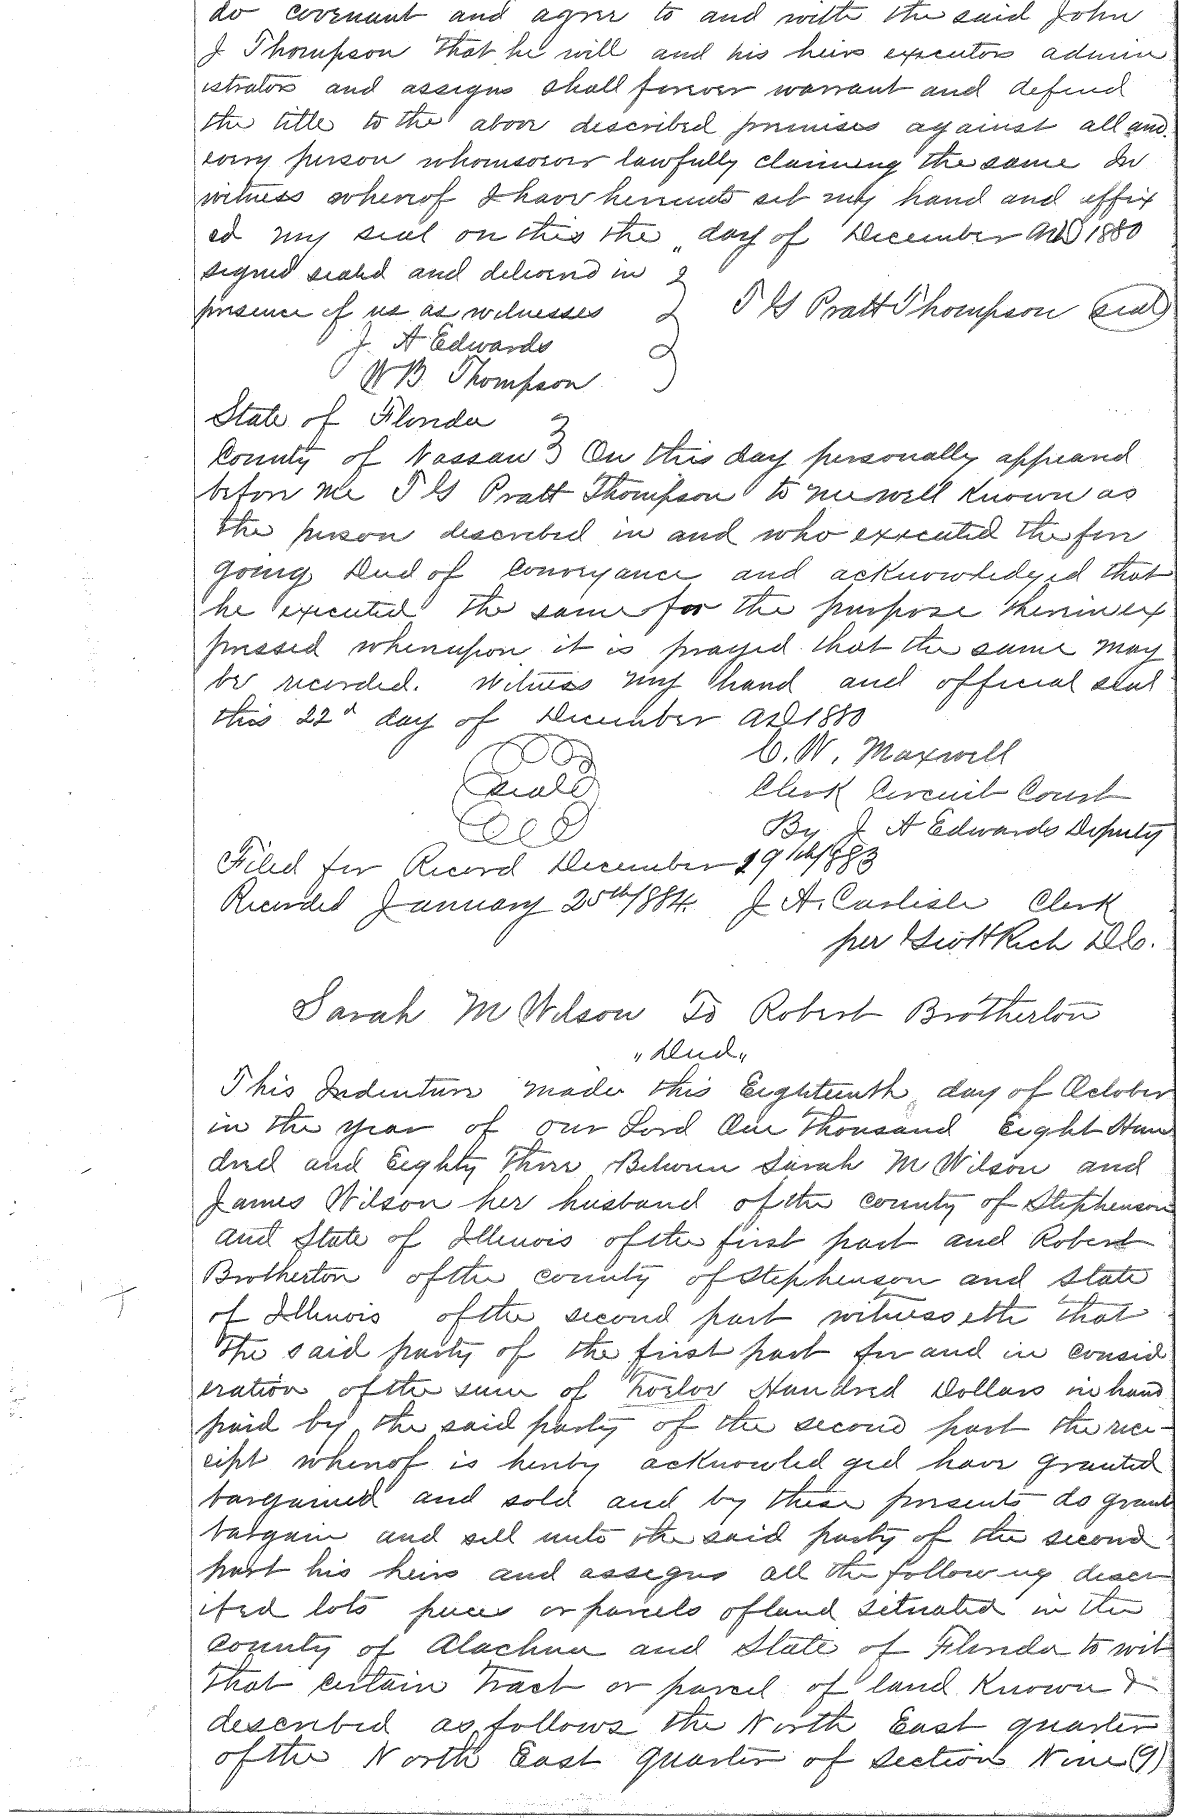 do covenant and agree to and with the said John
J Thompson that he will and his heirs executors admin
istrators and assigns shall forever warrant and defend
the title to the above described premises against all and
every person whomsoever lawfully claiming the same In
witness whereof I have hereunto set my hand and affix
ed my seal on this the " day of December AD 1880
signed sealed and delivered in
presence of us as witnesses
T G Pratt Thompson seal
J A Edwards
W B Thompson
State of Florida
County of Nassau } On this day personally appeared
before me T G Pratt Thompson to me well known as
the person described in and who executed the fore
going Deed of conveyance and acknowledged that
he executed the same for the purpose therein ex
pressed whereupon it is prayed that the same may
be recorded. Witness my hand and official seal
this 22d day of December AD 1880
seal
C. W. Maxwell
Clerk Circuit Court
By J A Edwards Deputy
Filed for Record December 19th/883
Recorded January 25th/884. J. A. Carlisle Clerk
per Geo H Rich D.C.
Sarah M Wilson To Robert Brotherton
"Deed"
This Indenture made this Eighteenth day of October
in the year of our Lord One Thousand Eight Hun
dred and Eighty Three Between Sarah M Wilson and
James Wilson her husband of the county of Stephenson
and State of Illinois of the first part and Robert
Brotherton of the county of Stephenson and State
of Illinois of the second part witnesseth that
the said party of the first part for and in consid
eration of the sum of Twelve Hundred Dollars in hand
paid by the said party of the second part the rece-
eipt whereof is hereby acknowledged have granted
bargained and sold and by these presents do grant
bargain and sell unto the said party of the second
part his heirs and assigns all the following descr
ibed lots pieces or parcels of land situated in the
County of Alachua and State of Florida to wit
that certain Tract or parcel of land Known &
described as follows the North East quarter
of the North East quarter of section Nine (9)